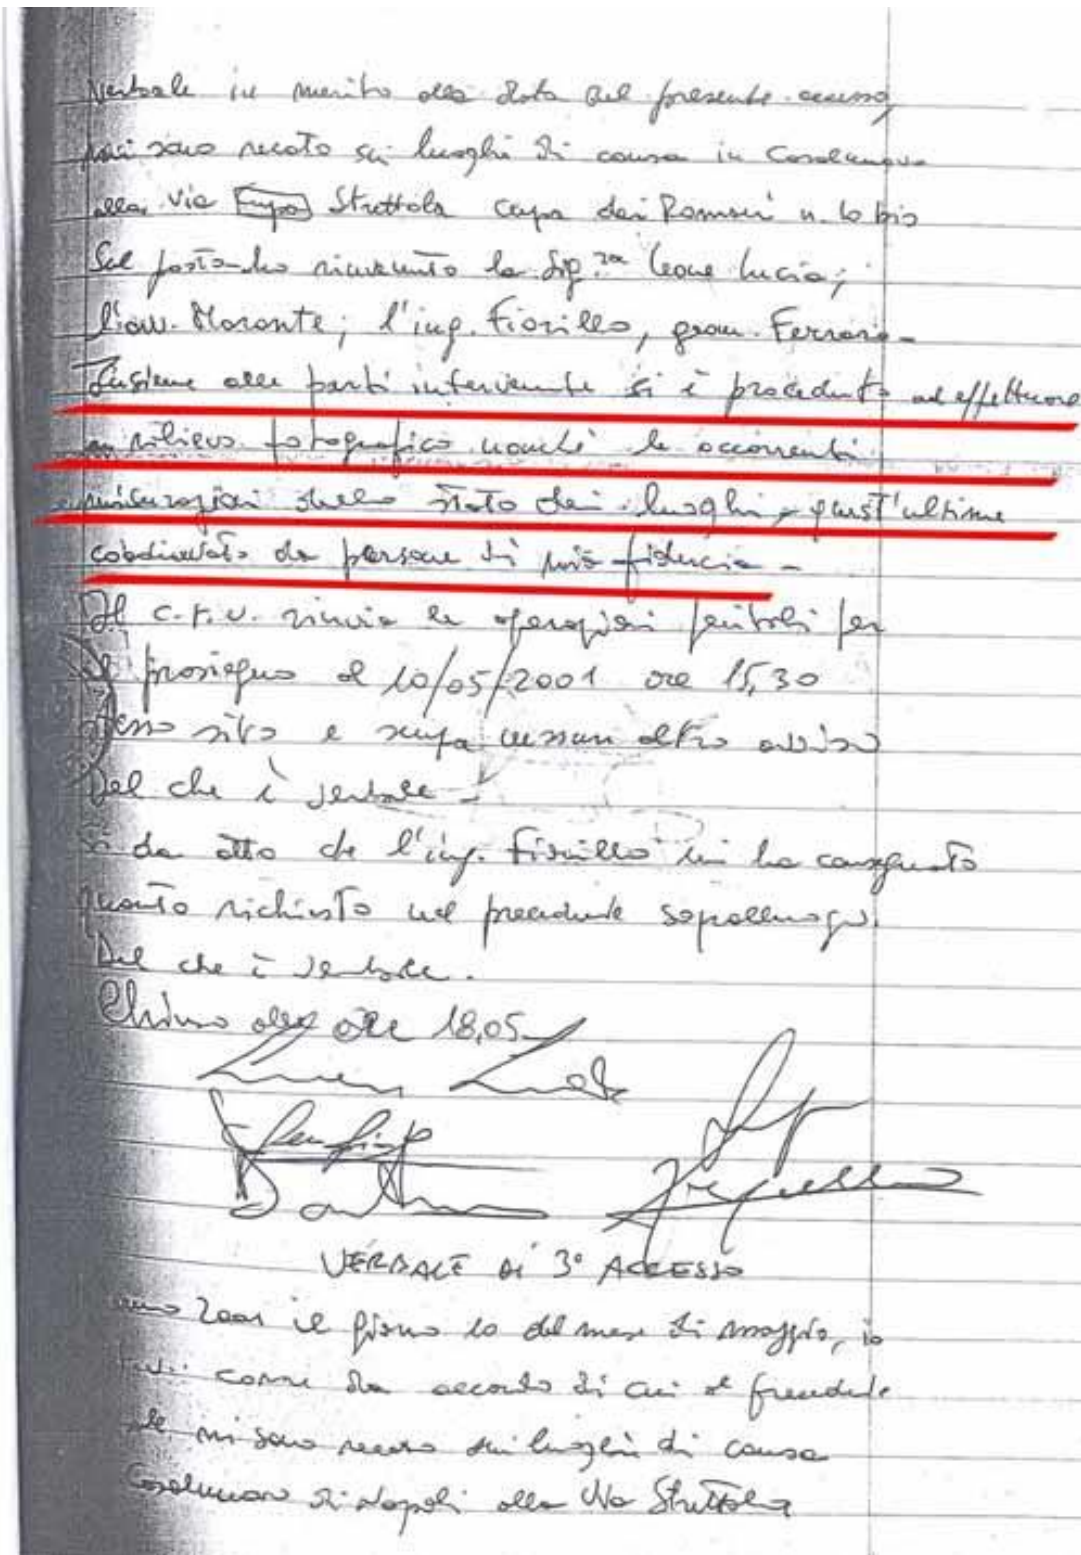 Verbale in merito alla data del presente accesso,
mi sono recato sui luoghi di causa in Casalnuovo
alla via Lupa Strettola capa dei Romani n. 10 bis
Sul posto ho rinvenuto la Sig.ra Leone Lucia;
l'avv. Morante; l'ing. Fiorillo, geom. Ferraro -
Insieme alle parti intervenute si è proceduto ad effettuare
un rilievo fotografico nonchè le occorrenti
misurazioni dello stato dei luoghi, quest'ultime
coadiuvato da persone di mia fiducia -
Il C.T.U. rinvia le operazioni peritali per
il prosieguo al 10/05/2001 ore 15,30
stesso sito e senza nessun altro avviso
Del che è verbale -
Si da atto che l'ing. Fiorillo mi ha consegnato
quanto richiesto nel precedente sopralluogo.
Del che è verbale.
Chiuso alle ore 18,05
VERBALE DI 3° ACCESSO
anno 2001 il giorno 10 del mese di maggio, io
come da accordo di cui al precedente
mi sono recato sui luoghi di causa
Casalnuovo di Napoli alla Via Strettola